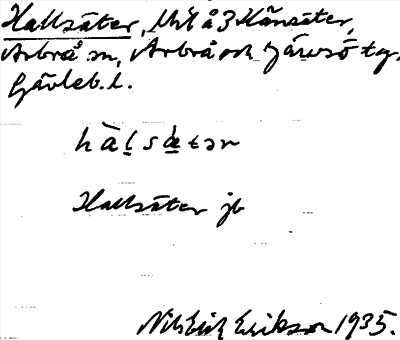 Hallsäter,
Arbrå sn, Arbrå och Järvsö tg,
Gävleb. l.
hàlsätər
Hallsäter jb
Nils Erik Erikson 1935.